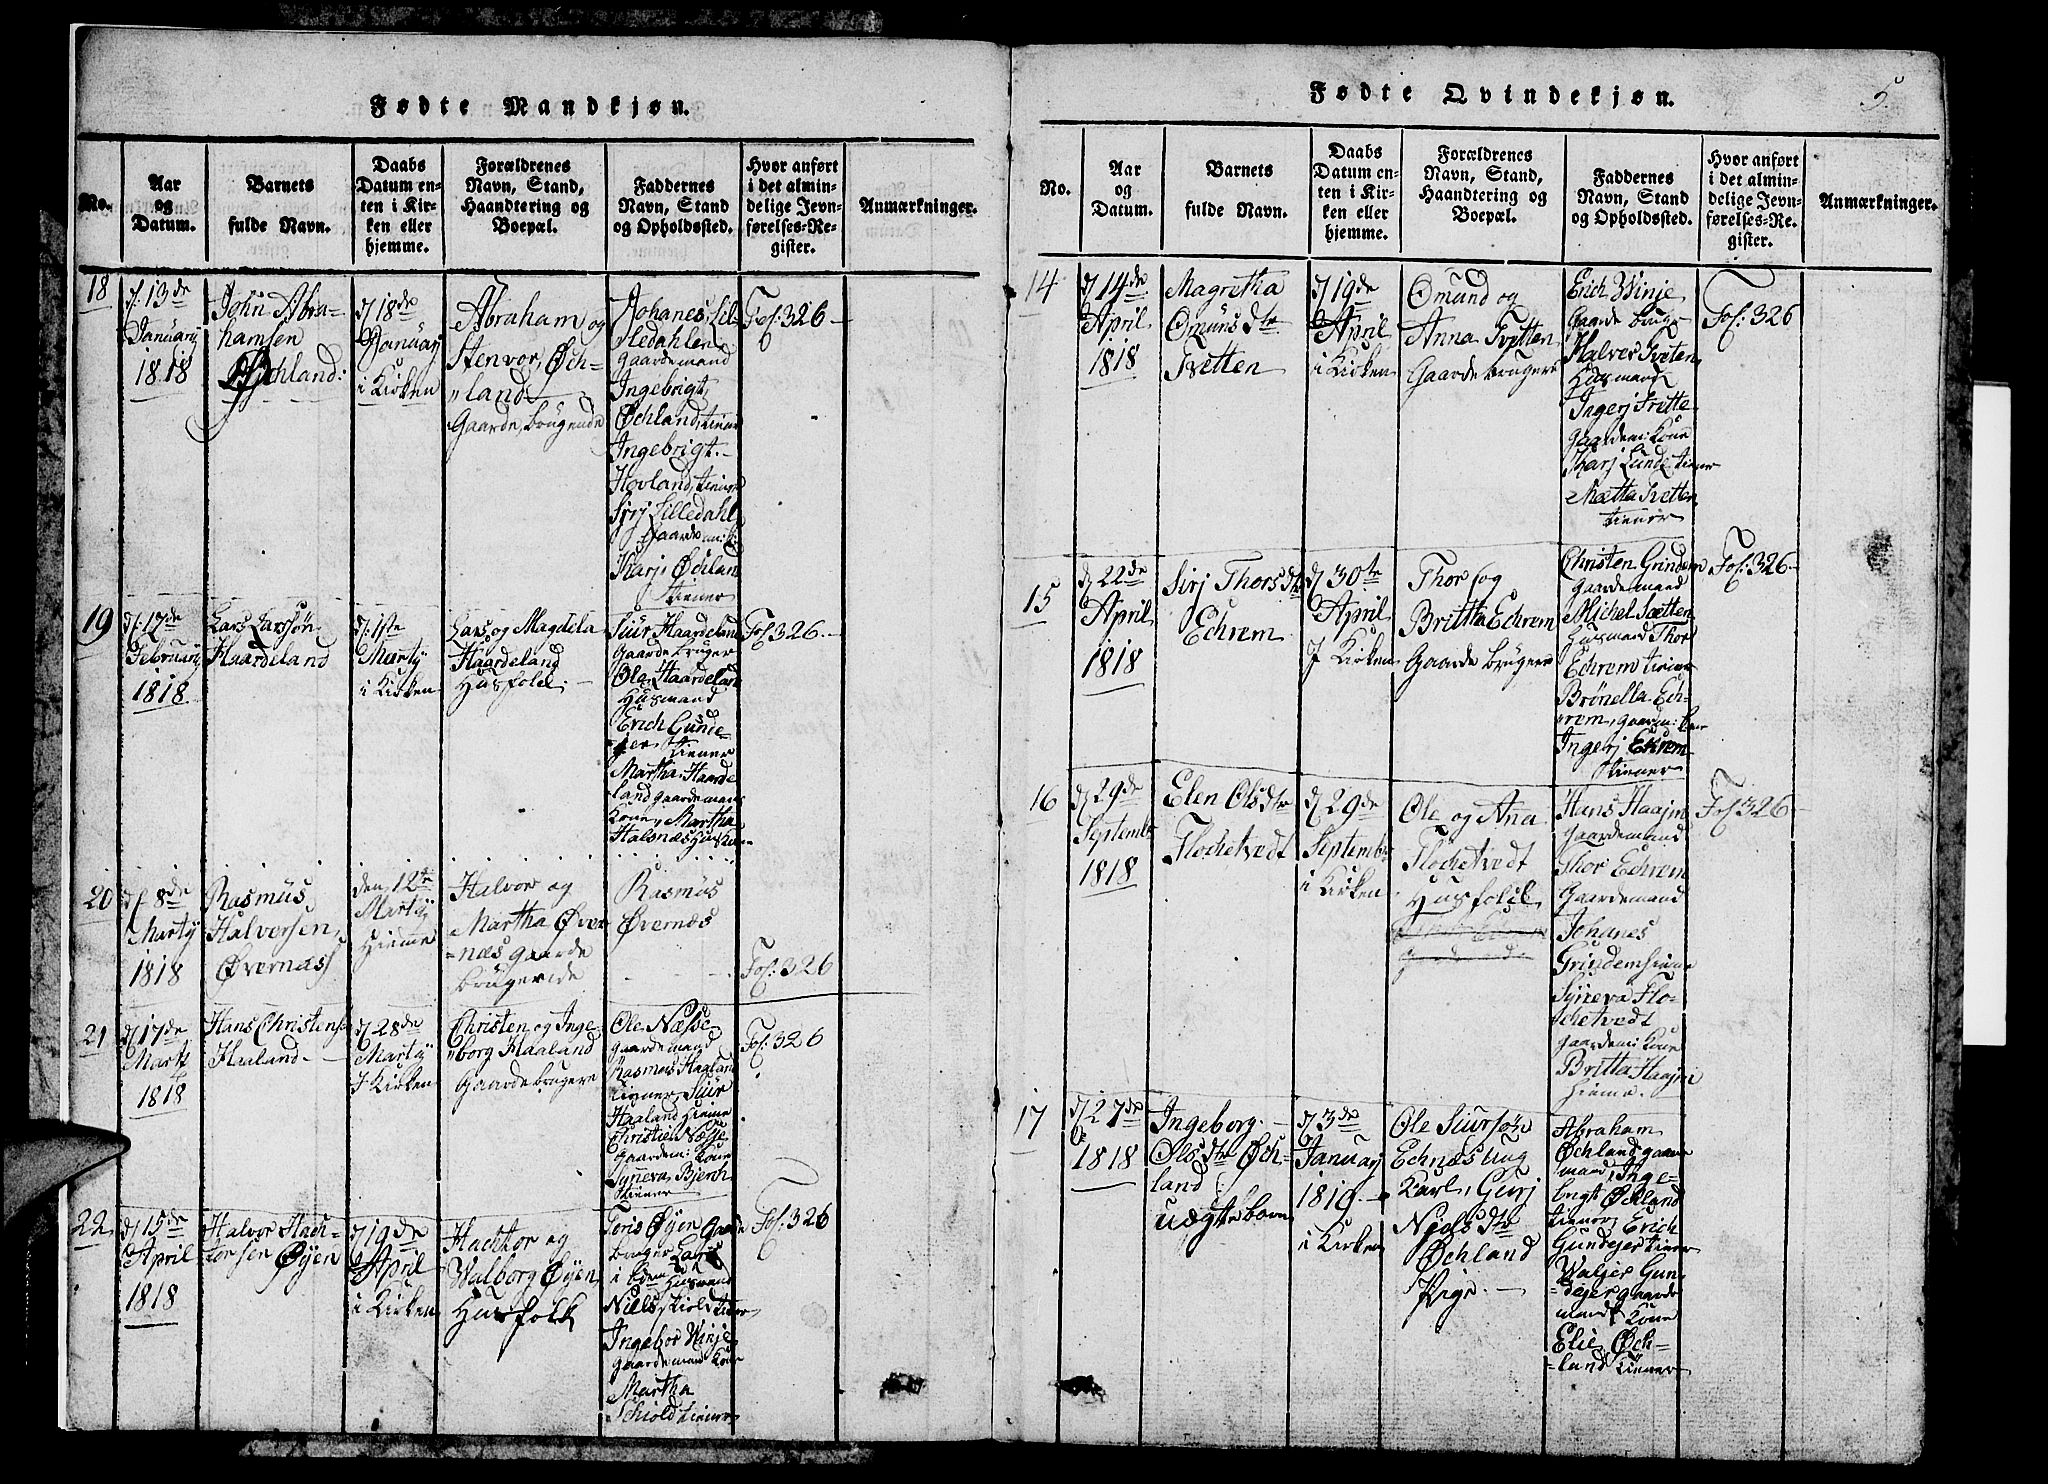 Fødte Mandkjøn.
No.
Aar
og
Datum.
Barnets
fulde Navn.
Daabs
Datum en-
ten i Kir-
ken eller
hjemme.
Forældrenes
Navn, Stand,
Haandtering og
Boepæl.
Faddernes
Navn, Stand
og Opholdssted.
Hvor anført
i det almin-
delige Jevn-
førelses-Re-
gister.
Anmærkninger.
18
d. 13de
January
1818
John Abra-
hamsen
Øchland:
d 18de
January
i Kirken
Abraham og
Stenvor Øch-
land
Gaarde brugende
Johanes Lil-
ledahlen
gaardemand
Ingebrigt
Øchland, tiener
Ingebrigt
Hovland, tiener
Sirj Lilledahl
Gaardemm: K:
Karj Øchland
tiener
Fol: 326
19
d: 17de
February
1818
Lars Larssøn
Haardeland
d: 1ste
Martij
i Kirken
Lars og Magdela
Haardeland
Husfolk
Siur Haardeland
Gaarde bruger
Ola Haardeland
Husmand
Erich Gunde-
jer tiener
Martha Haarde
land gaardemans
Kone, Martha
Halsnæs
Fol: 326
20
d 8de
Martij
1818
Rasmus
Halversen
Øvernæs
den 12te
Martij
Hieme
Halvor og
Martha Øver
=næs gaarde
brugende
Rasmus
Øvernæs
Fol: 326
21
d 17de
Martj
1818
Hans Christens
Haaland
d 28de
Martij
J Kirken
Christen og Inge-
borg Haaland
Gaardebrugere
Ole Næsse
gaardemand
Rasmus Haaland
tiener, Siur
Haaland hieme
Christie Næsse
gaardem: Kone
Synneva Bjerch
tiener
Fol: 326
22
d 15de
April
1818
Halvor Hach-
torsen Øyen
d 19de
April
i Kirken
Hachtor og
Walborg Øyen
Husfolk
Toris Øyen Gaarde
bruger Lars
i Husmand
Niels Skiold tiener
Ingebor Winje
gaardemand Kone
Martha
Schiold tiener
Fol: 326
Fødte Qvindekjøn.
5.
No.
Aar
og
Datum.
Barnets
fulde Navn.
Daabs
Datum en-
ten i Kir-
ken eller
hjemme.
Forældrenes
Navn, Stand,
Haandtering og
Boepæl.
Faddernes
Navn, Stand
og Opholdssted.
Hvor anført
i det almin-
delige Jevn-
førelses-Re-
gister.
Anmærkninger.
14
d 14de
April
1818
Magretha
Omunsdtr
Tvetten
d 19de
April
i Kirken
Omund og
Anna Tvetten
Gaardebrugere
Erich Winje
Gaarde bruger
Halver Tveten
Husmand
Ingerj Tvette
gaardem: Kone
Tharj Lunde tiener
Mætta Tvetten
tiener
Fol: 326
15
d 22de
April
1818
Sirj Thorsdtr
Echrem
d 30te
April
J Kirken
Thor og
Brittha Echrem
Gaarde brugere
Christen Grindem
gaardemand
Michel Sætten
Husmand Thor
Echrem tiener
Brönella Ech-
rem, gaardm: Kone
Ingerj Ekrem
tiener
Fol: 326
16
d 29de
Septembr
1818
Elen Olsdtr
Flochetvedt
d 29de
Septembr
i Kirken
Ole og Ana
Flochetvedt
Husfolk
Hans Haajm
gaardemand
Thor Echrem
Gaardemand
Johanes
Grindem hieme
Synneva Flo-
chetvedt
gaardem: Kone
Britta Haajm
hieme.
Fol: 326
17
d 27de
1818
Ingeborg
Olsdtr Øch-
land
uægte barn
d 3de
Januarj
1819
i Kirken
Ole Siursøn
Echnæs ung
Karl, Gurj
Nielsdtr
Øchland
Pige
Abraham
Øchland gaarde
mand, Inge-
brigt Øchland
tiener, Erich
Gundejer tiener
Waljer Gun-
dejer gaarde
mand Kone
Elie Øch-
land tiener